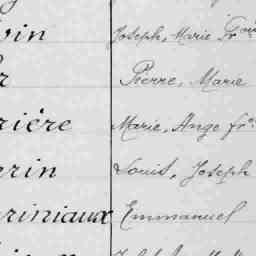 vin Joseph, Marie Fr
r Pierre, Marie
rière Marie, Ange fr
rin Louis, Joseph
riniaux Emmanuel